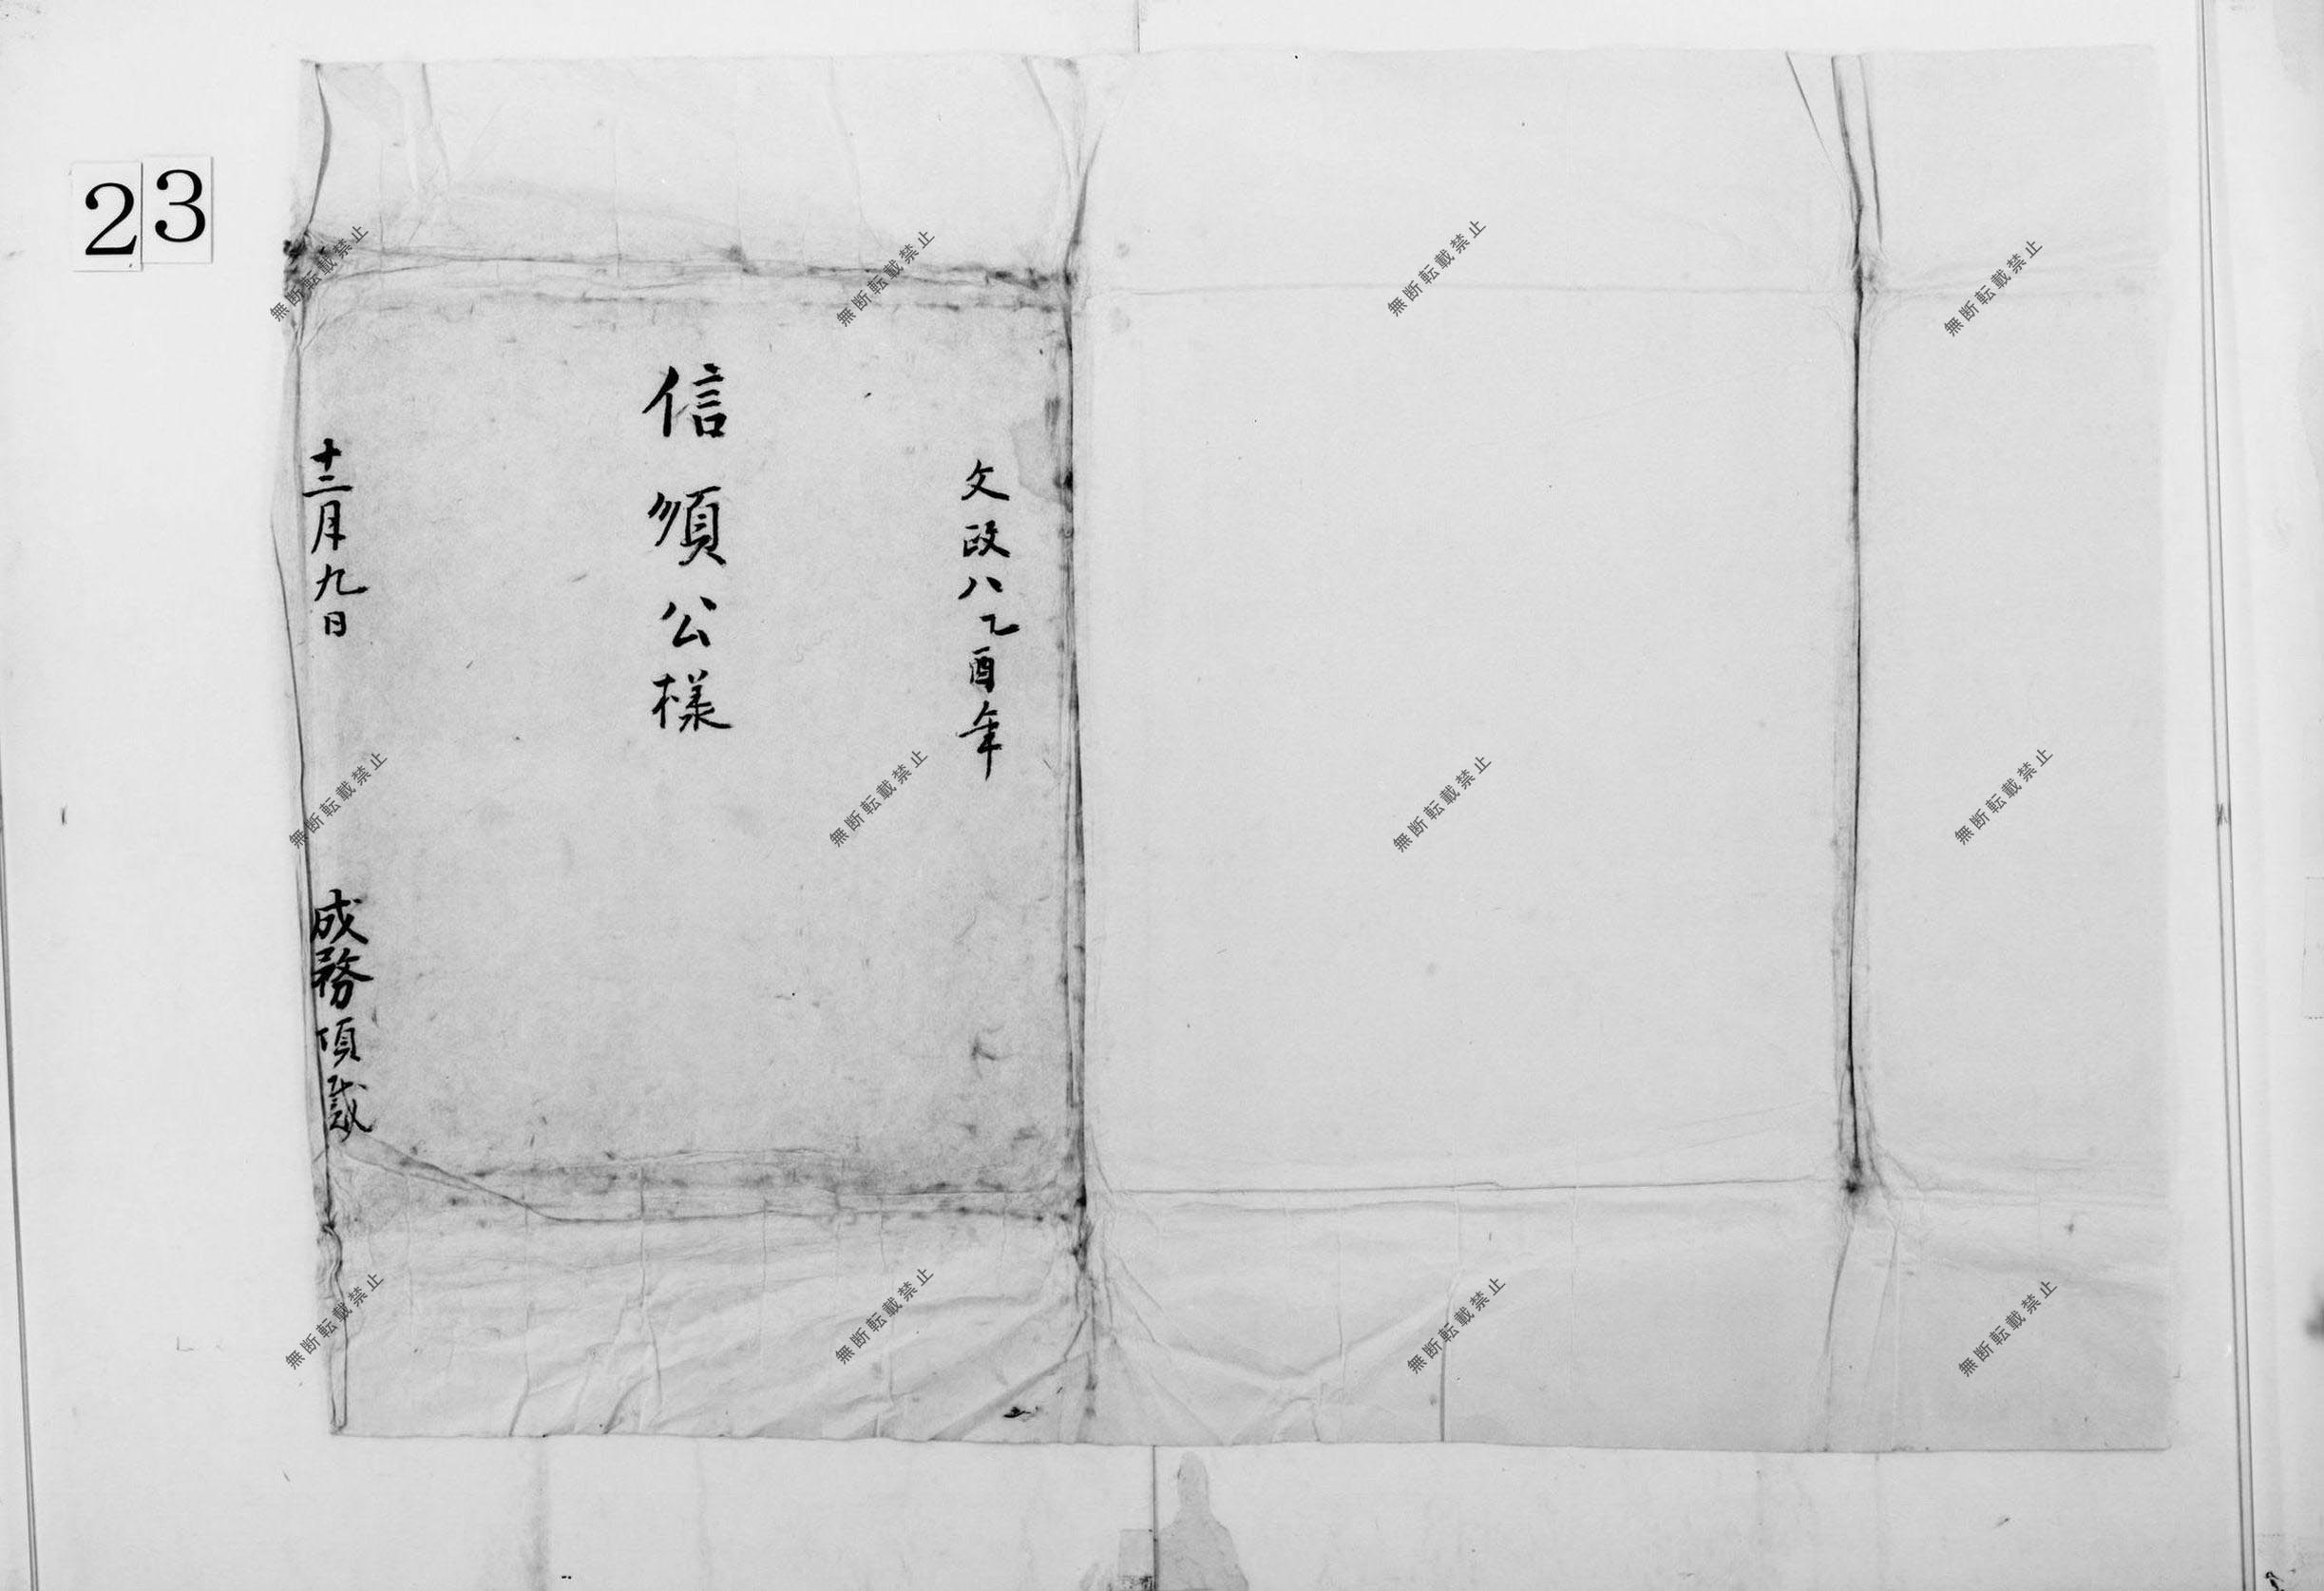 文政八乙酉年
信順公様
十二月九日
成務頂戴
23
無断転載禁止
無断転載禁止
無断転載禁止
無断転載禁止
無断転載禁止
無断転載禁止
無断転載禁止
無断転載禁止
無断転載禁止
無断転載禁止
無断転載禁止
無断転載禁止